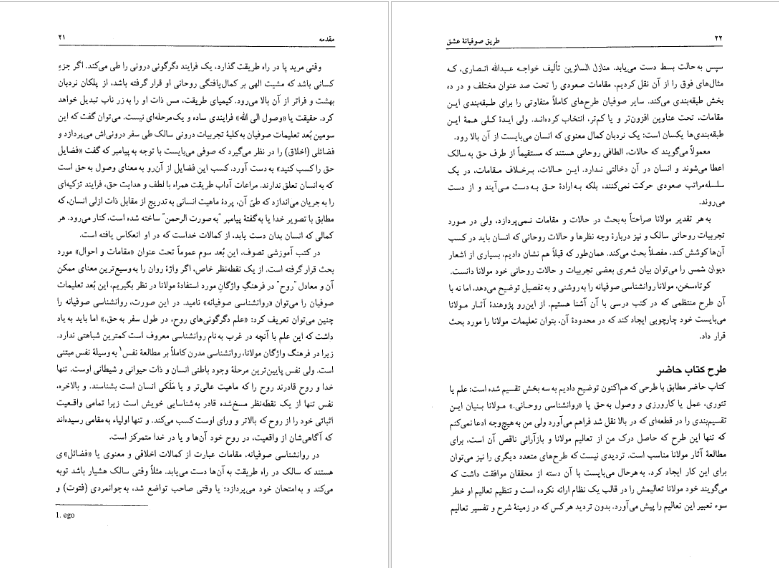 مقدمه ۲۱
وقتی مرید پا در راه طریقت گذارد، یک فرایند دگرگونی درونی را طی می‌کند. اگر جزءِ
کسانی باشد که مشیت الهی بر کمال‌یافتگی روحانی او قرار گرفته باشد، از پلکان نردبان
بهشت و فراتر از آن بالا می‌رود. کیمیای طریقت، مس ذات او را به زر ناب تبدیل خواهد
کرد. حقیقت یا «وصول الی الله» فرایندی ساده و یک‌مرحله‌ای نیست. می‌توان گفت که این
سومین بُعد تعلیمات صوفیان به کلیهٔ تجربیات درونی سالک طی سفر درونی‌اش می‌پردازد و
فضائلی (اخلاق) را در نظر می‌گیرد که صوفی می‌بایست با توجه به پیامبر که گفت «فضایل
حق را کسب کنید» به دست آورد. کسب این فضایل از آن‌رو به معنای وصول به حق است
که به انسان تعلق ندارند. مراعات آداب طریقت همراه با لطف و هدایت حق، فرایند تزکیه‌ای
را به جریان می‌اندازد که طیّ آن، پردهٔ ماهیت انسانی به تدریج از مقابل ذات ازلی انسان، که
مطابق با تصویر خدا یا به‌گفتهٔ پیامبر "به صورت الرحمن" ساخته شده است، کنار می‌رود. هر
کمالی که انسان بدان دست یابد، از کمالات خداست که در او انعکاس یافته است.
در کتب آموزشی تصوف، این بُعد سوم عموماً تحت عنوان «مقامات و احوال» مورد
بحث قرار گرفته است. از یک نقطه‌نظر خاص، اگر واژهٔ روان را به‌وسیع‌ترین معنای ممکن
آن و معادل "روح" در فرهنگِ واژگانِ مورد استفادهٔ مولانا در نظر بگیریم، این بُعد تعلیمات
صوفیان را می‌توان «روانشناسی صوفیانه» نامید. در این صورت، روانشناسی صوفیانه را
چنین می‌توان تعریف کرد: «علم دگرگونی‌های روح، در طول سفر به حق.» اما باید به یاد
داشت که این علم با آنچه در غرب به‌نام روانشناسی معروف است کمترین شباهتی ندارد.
زیرا در فرهنگ واژگان مولانا، روانشناسی مدرن کاملاً بر مطالعهٔ نفس۱ به وسیلهٔ نفس مبتنی
است. ولی نفس پایین‌ترین مرحلهٔ وجود باطنی انسان و ذات حیوانی و شیطانی اوست. تنها
خدا و روح قادرند روح را که ماهیت عالی‌تر و یا مَلَکی انسان است بشناسند. و بالاخره،
نفس تنها از یک نقطه‌نظر مسخ‌شده قادر به‌شناسایی خویش است زیرا تمامی واقعیت
اثباتی خود را از روح که بالاتر و ورای اوست کسب می‌کند. و تنها اولیاء به مقامی رسیده‌اند
که آگاهی‌شان از واقعیت، در روح خود آن‌ها و یا در خدا متمرکز است.
در روانشناسی صوفیانه، مقامات عبارت از کمالات اخلاقی و معنوی یا «فضائل»ی
هستند که سالک در راه طریقت به آن‌ها دست می‌یابد. مثلاً وقتی سالک هشیار باشد توبه
می‌کند و به‌امتحان خود می‌پردازد؛ یا وقتی صاحب تواضع شد، به‌جوانمردی (فتوت) و
1. ego
۲۲ طریق صوفیانهٔ عشق
سپس به حالت بسط دست می‌یابد. منازل السائرین تألیف خواجه عبدالله انصاری، که
مثال‌های فوق را از آن نقل کردیم، مقامات صعودی را تحت صد عنوان مختلف و در ده
بخش طبقه‌بندی می‌کند. سایر صوفیان طرح‌های کاملاً متفاوتی را برای طبقه‌بندی این
مقامات، تحت عناوین افزون‌تر و یا کم‌تر، انتخاب کرده‌اند. ولی ایدهٔ کلی همهٔ این
طبقه‌بندی‌ها یکسان است: یک نردبان کمال معنوی که انسان می‌بایست از آن بالا رود.
معمولاً می‌گویند که حالات، الطافی روحانی هستند که مستقیماً از طرف حق به سالک
اعطا می‌شوند و انسان در آن دخالتی ندارد. این حالات، برخلاف مقامات، در یک
سلسله‌مراتب صعودی حرکت نمی‌کنند، بلکه به ارادهٔ حق به دست می‌آیند و از دست
می‌روند.
به هر تقدیر مولانا صراحتاً به‌بحث در حالات و مقامات نمی‌پردازد، ولی در مورد
تجربیات روحانی سالک و نیز دربارهٔ وجه نظرها و حالات روحانی که انسان باید در کسب
آن‌ها کوشش کند، مفصلاً بحث می‌کند. همان‌طور که قبلاً هم نشان دادیم، بسیاری از اشعار
دیوان شمس را می‌توان بیان شعری بعضی تجربیات و حالات روحانی خود مولانا دانست.
کوتاه‌سخن، مولانا روانشناسی صوفیانه را به‌روشنی و به تفصیل توضیح می‌دهد، اما نه با
آن طرح منتظمی که در کتب درسی با آن آشنا هستیم. از این‌رو پژوهندهٔ آثار مولانا
می‌بایست خود چارچوبی ایجاد کند که در محدودهٔ آن، بتوان تعلیمات مولانا را مورد بحث
قرار داد.
طرح کتاب حاضر
کتاب حاضر مطابق با طرحی که هم‌اکنون توضیح دادیم به سه بخش تقسیم شده است: علم یا
تئوری، عمل یا کارورزی و وصول به حق یا «روانشناسی روحانی.» مولانا بنیان این
تقسیم‌بندی را در قطعه‌ای که در بالا نقل شد فراهم می‌آورد ولی من به هیچ‌وجه ادعا نمی‌کنم
که تنها این طرح که حاصل درک من از تعالیم مولانا و بازآرائی ناقص آن است، برای
مطالعهٔ آثار مولانا مناسب است. تردیدی نیست که طرح‌های متعدد دیگری را نیز می‌توان
برای این کار ایجاد کرد. به هرحال می‌بایست با آن دسته از محققان موافقت داشت که
می‌گویند خود مولانا تعالیمش را در قالب یک نظام ارائه نکرده است و تنظیم تعالیم او خطر
سوء تعبیر این تعالیم را پیش می‌آورد. بدون تردید هر کس که در زمینهٔ شرح و تفسیر تعالیم